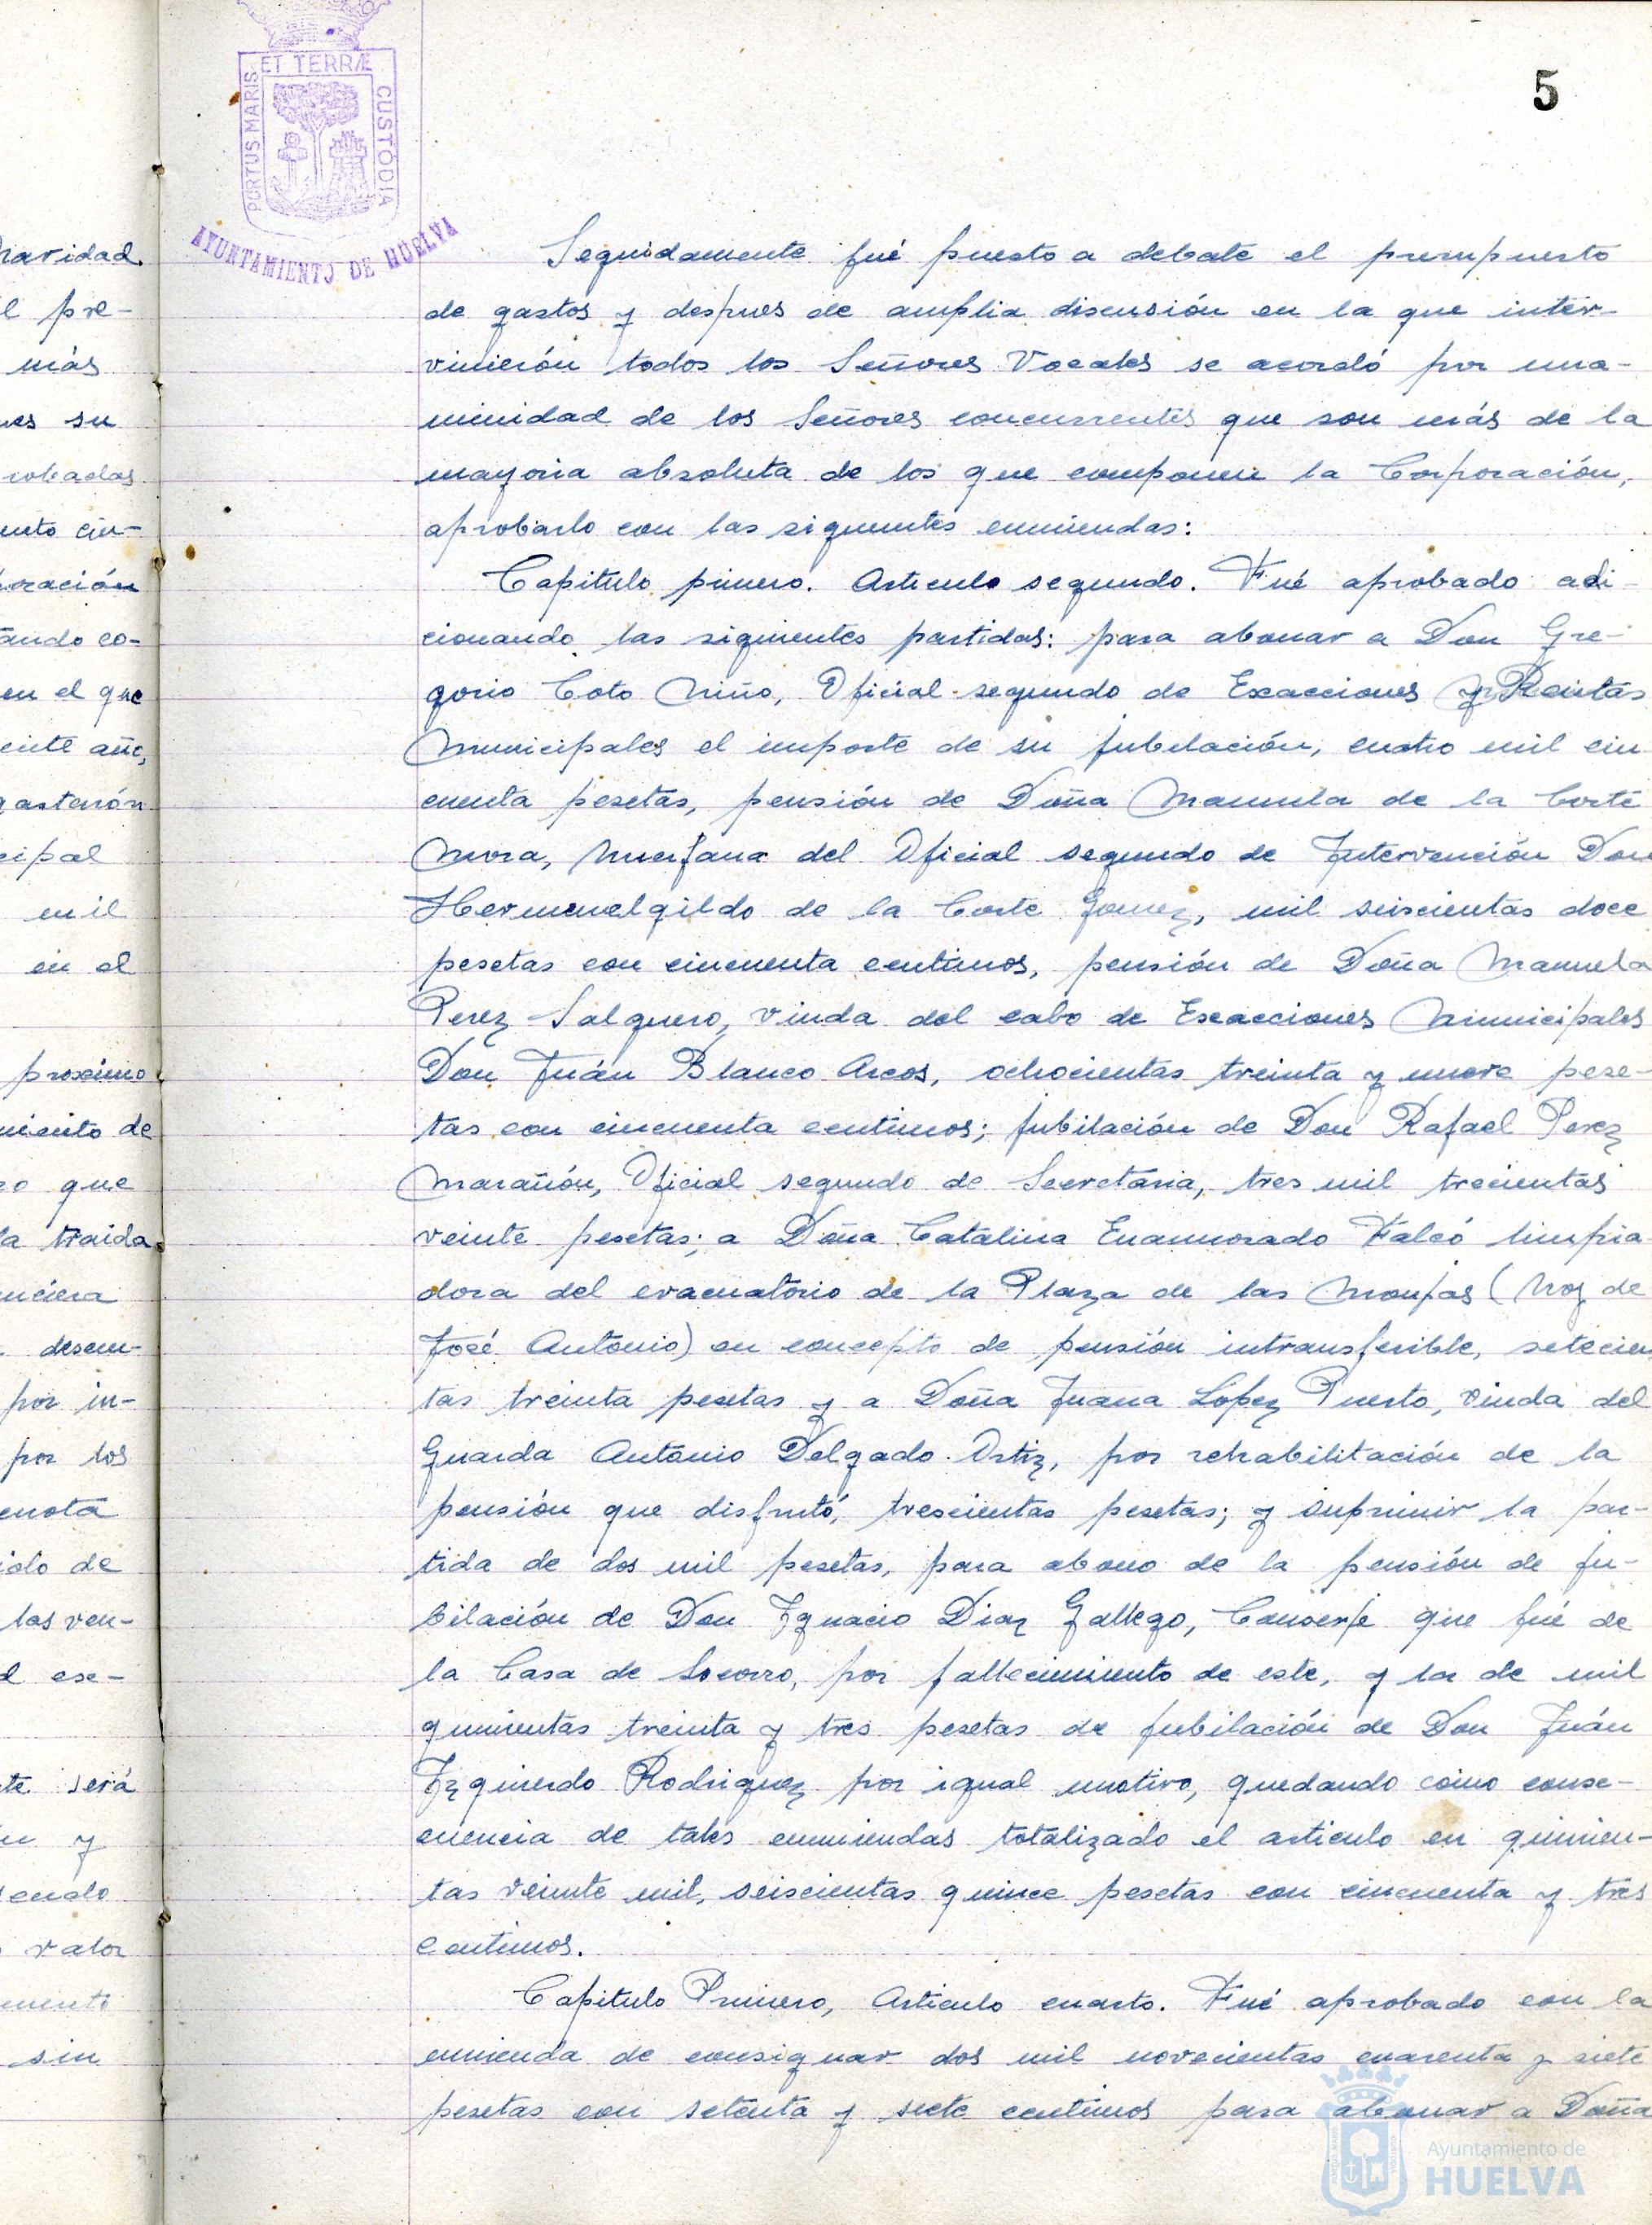 5
PORTUS MARIS ET TERRÆ CUSTODIA
AYUNTAMIENTO DE HUELVA
Seguidamente fué puesto a debate el presupuesto
de gastos y despues de amplia discusión en la que inter-
vinierón todos los Señores Vocales se acordó por una-
nimidad de los Señores concurrentes que son más de la
mayoria absoluta de los que componen la Corporación,
aprobarlo con las siguientes enmiendas:
Capitulo primero. Articulo segundo. Fué aprobado adi-
cionando las siguientes partidas: para abonar a Don Gre-
gorio Coto Niño, Oficial segundo de Exacciones y Rentas
Municipales el importe de su jubilación, cuatro mil cin
cuenta pesetas, pensión de Doña Manuela de la Corte
Mora, huerfana del Oficial segundo de Intervención Don
Hermenelgildo de la Corte Gomez, mil seiscientas doce
pesetas con cincuenta centimos, pensión de Doña Manuela
Perez Salguero, viuda del cabo de Exacciones Municipales
Don Juán Blanco Arcos, ochocientas treinta y nueve pese-
tas con cincuenta centimos; jubilación de Don Rafael Perez
Marañón, Oficial segundo de Secretaria, tres mil trecientas
veinte pesetas; a Doña Catalina Enamorado Falcó limpia-
dora del evacuatorio de la Plaza de las Monjas (hoy de
José Antonio) en concepto de pensión intransferible, setecien
tas treinta pesetas y a Doña Juana Lopez Puerto, viuda del
Guarda Antonio Delgado Ortiz, por rehabilitación de la
pensión que disfrutó, trescientas pesetas; y suprimir la par-
tida de dos mil pesetas, para abono de la pensión de ju-
bilación de Don Ignacio Diaz Gallego, Conserje que fué de
la Casa de Socorro, por fallecimiento de este, y la de mil
quinientas treinta y tres pesetas de jubilación de Don Juán
Izquierdo Rodriguez por igual motivo, quedando como conse-
cuencia de tales enmiendas totalizado el articulo en quinien-
tas veinte mil, seiscientas quince pesetas con cincuenta y tres
centimos.
Capitulo Primero, Articulo cuarto. Fué aprobado con la
enmienda de consignar dos mil novecientas cuarenta y siete
pesetas con setenta y siete centimos para abonar a Doña
l pre-
más
su
en el que
mil
en el
proximo
que
la traida
por in-
por los
será
y
valor
sin
Ayuntamiento de
HUELVA